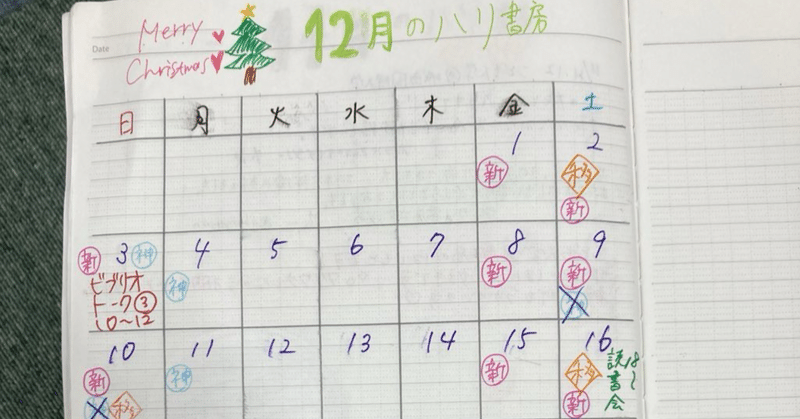 Date
Merry
Christmas
12月のハリ書房
日 月 火 水 木 金 土
1 2
新 移
新
新 3 神 4 5 6 7 8 9
ビブリオ 神 新 新
トーク③
10〜12
10 11 12 13 14 15 16
新 神 新 移 読書会 18〜
移 新